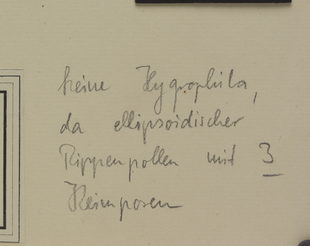 keine Hygrophila,
da ellipsoidischer
Rippenpollen mit 3
Keimporen